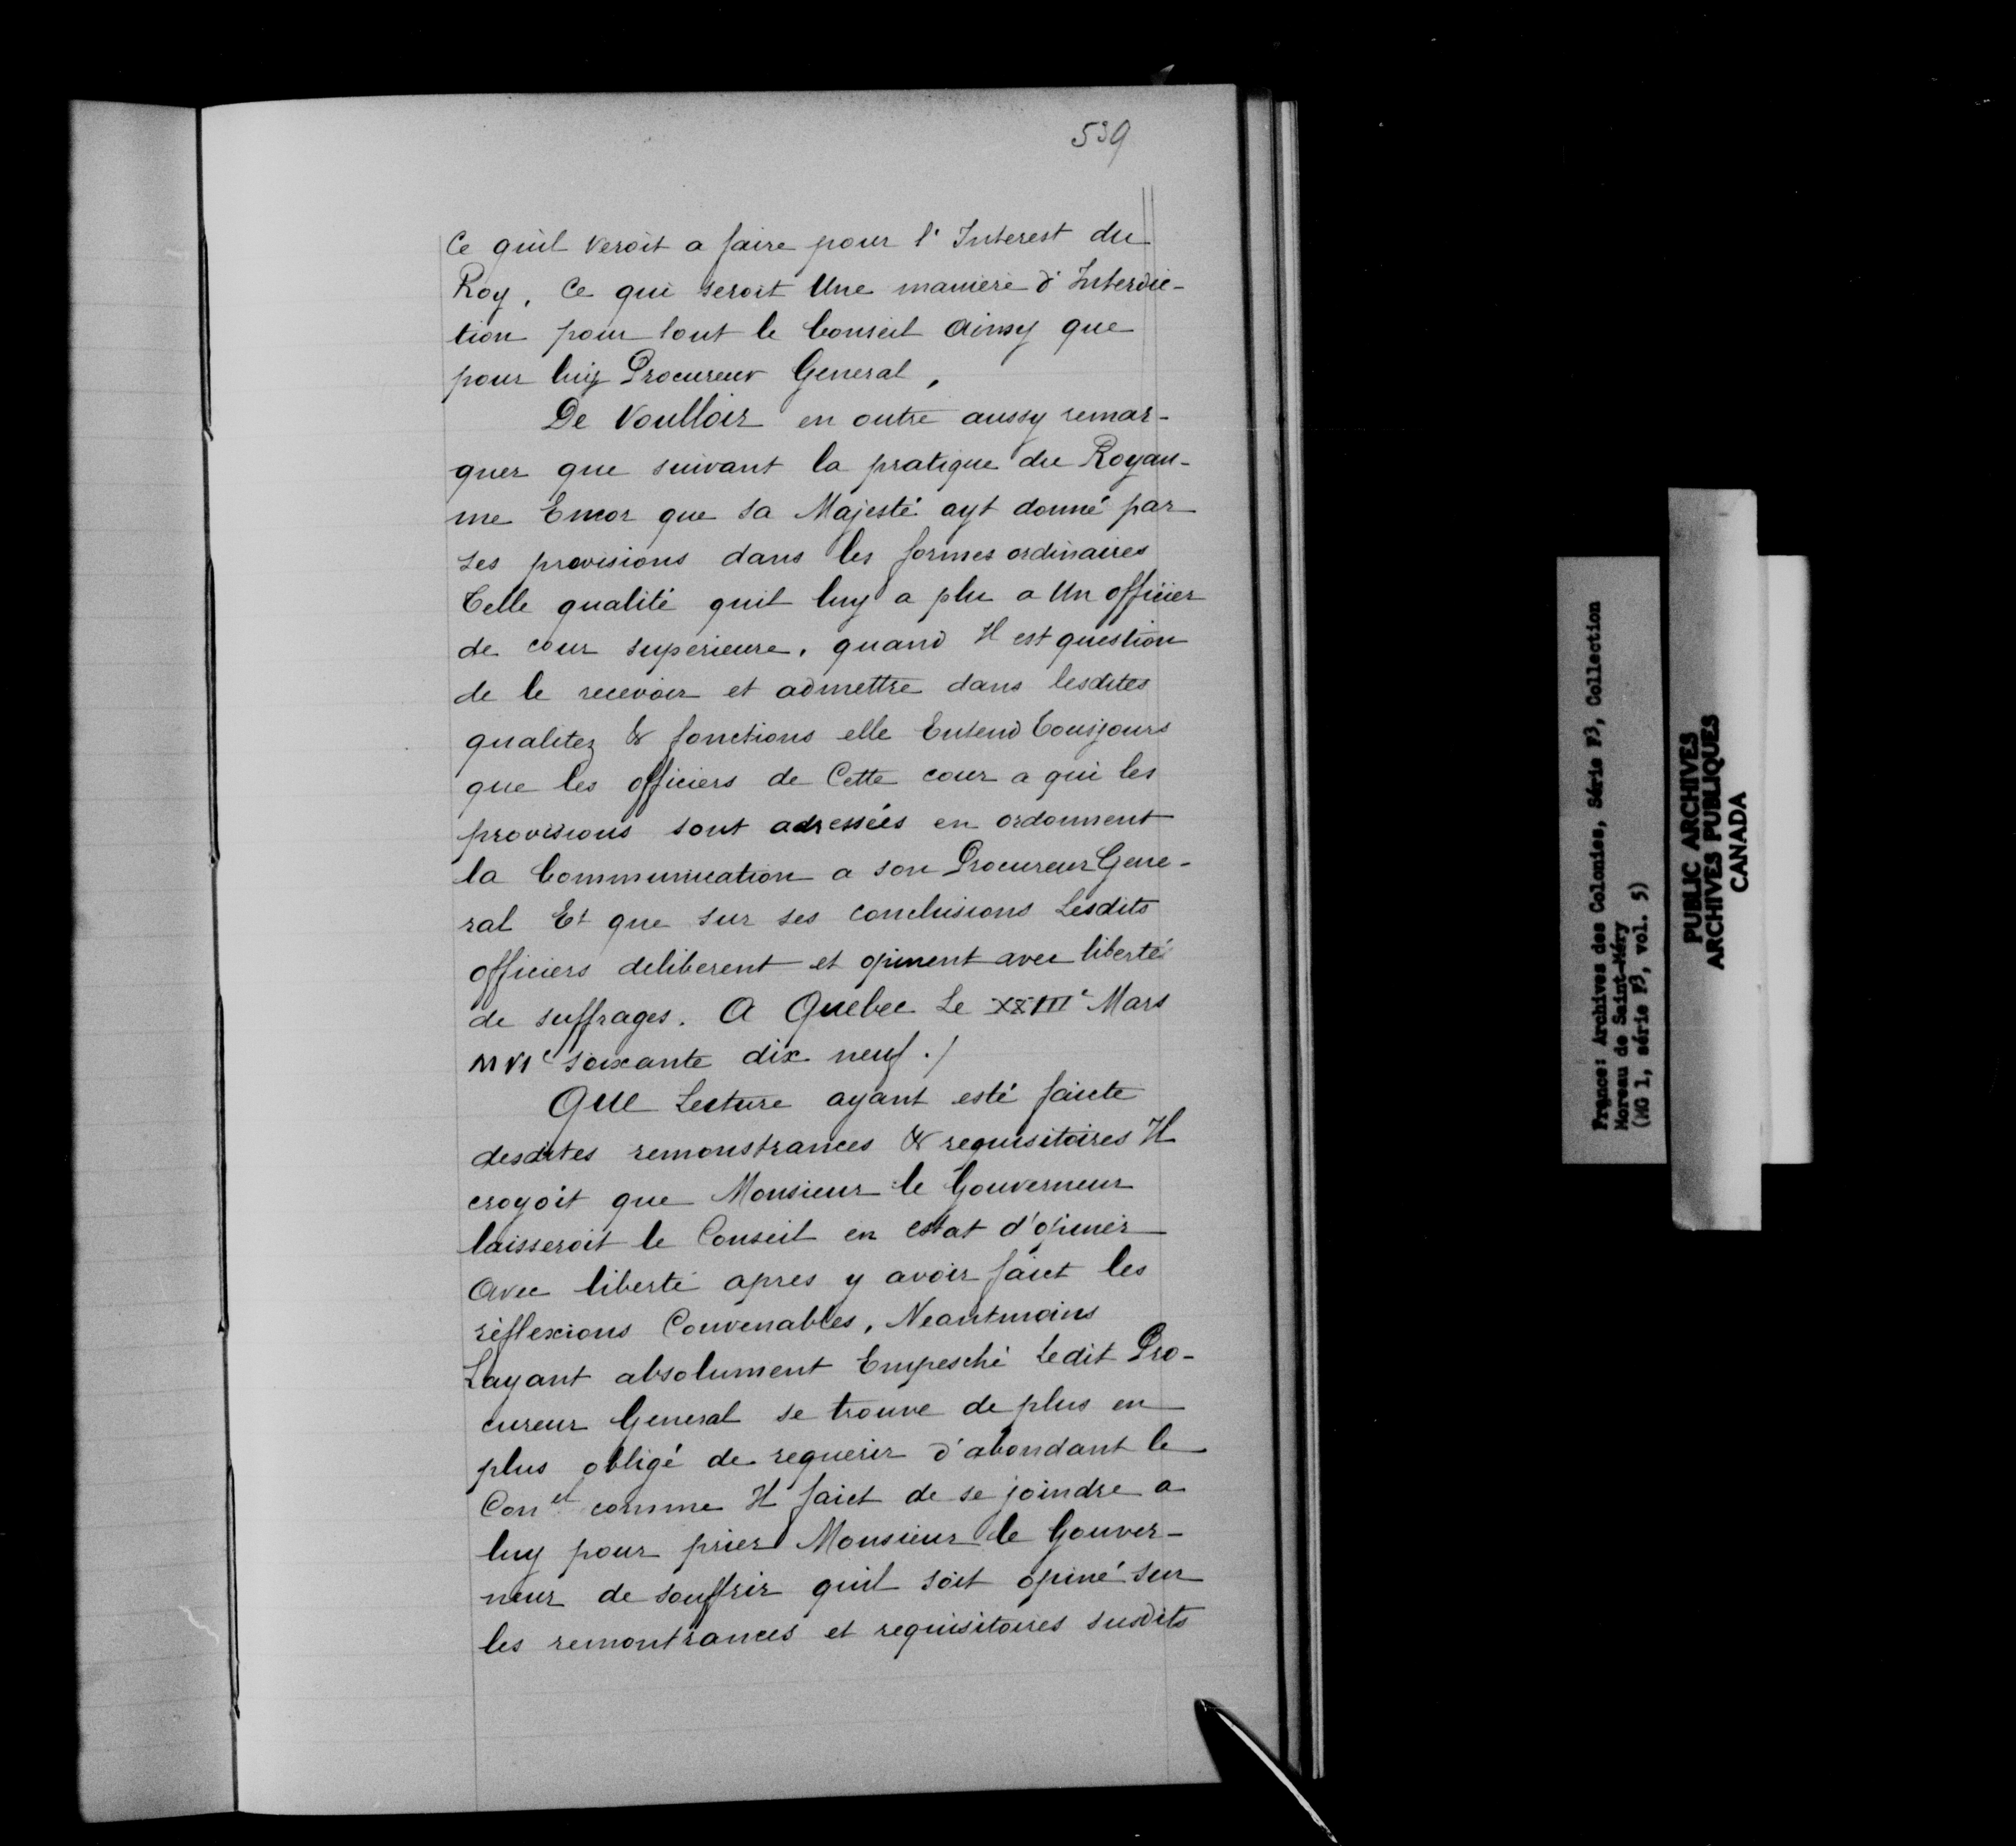 539
Ce quil veroit a faire pour l'Interest du
Roy, Ce qui seroit Une maniere d'Interdic-
tion pour tout le Conseil Ainsy que
pour luy Procureur General,
De Voulloir en outre aussy remar-
quer que suivant la pratique du Royau-
me Encor que sa Majesté ayt donné par
ses provisions dans les formes ordinaires
Telle qualité quil luy a plu a Un officier
de cour superieure, quand Il est question
de le recevoir et admettre dans lesdites
qualitez & fonctions elle Entend Tousjours
que les officiers de Cette cour a qui les
provisions sont adressées en ordonnent
la Communication a son Procureur Gene-
ral Et que sur ses conclusions Lesdits
officiers deliberent et opinent avec liberté
de suffrages. A Quebec Le XXIIIe Mars
M VIc soixante dix neuf./
QUE Lecture ayant esté faicte
desdites remonstrances & requisitoires Il
croyoit que Monsieur le Gouverneur
laisseroit le Conseil en estat d'opiner
Avec liberté apres y avoir faict les
réflexions Convenables, Neantmoins
Layant absolument Empesché Ledit Pro-
cureur General se trouve de plus en
plus obligé de requerir d'abondant le
Conel comme Il faict de se joindre a
luy pour prier Monsieur le Gouver-
neur de souffrir quil soit opiné sur
les remontrances et requisitoires susdits
France: Archives des Colonies, Série F3, Collection
Moreau de Saint-Méry
(MG 1, série F3, vol. 5)
PUBLIC ARCHIVES
ARCHIVES PUBLIQUES
CANADA